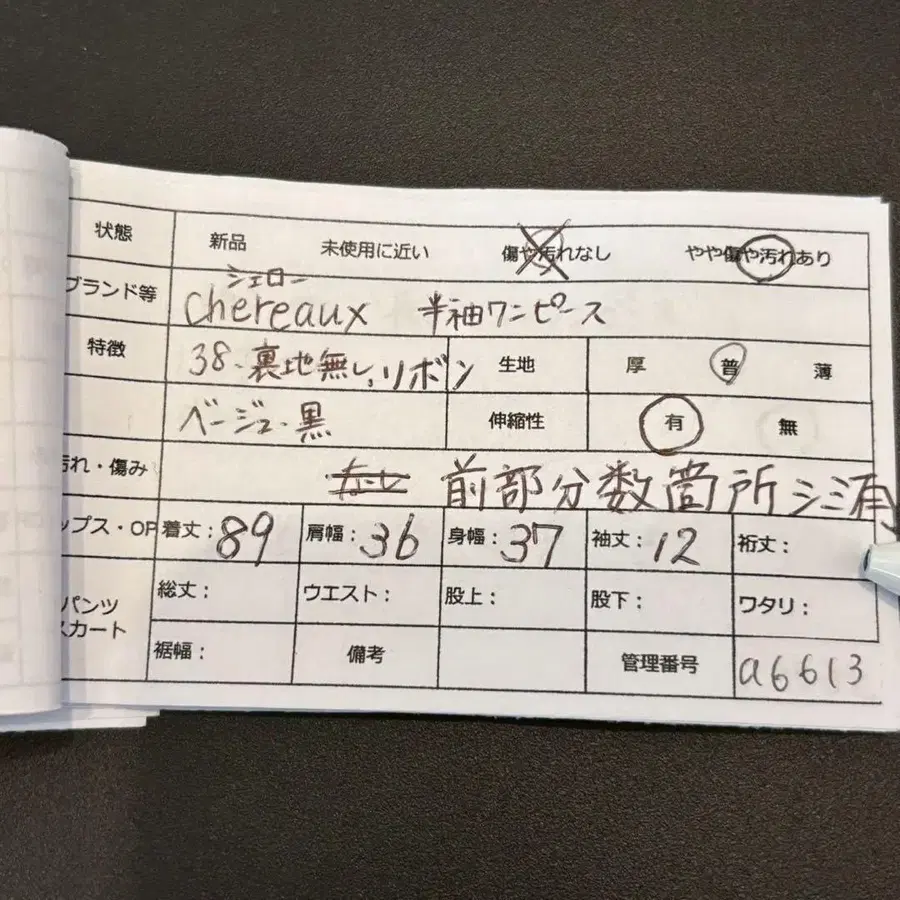 状態 新品 未使用に近い 傷や汚れなし やや傷や汚れあり
ブランド等 シェロー
chereaux 半袖ワンピース
特徴 38.裏地無し,リボン 生地 厚 普 薄
ベージュ・黒 伸縮性 有 無
汚れ・傷み 前部分数箇所シミ有
ップス・OP 着丈:89 肩幅:36 身幅:37 袖丈:12 裄丈:
パンツ
スカート 総丈: ウエスト: 股上: 股下: ワタリ:
裾幅: 備考 管理番号 a6613